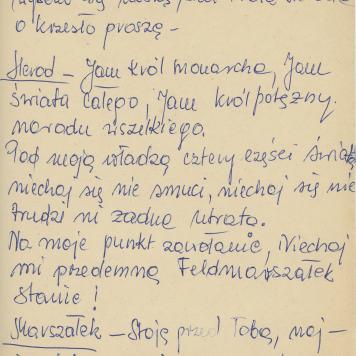 o krzesło proszę –
Herod – Jam król monarcha, Jam
świata całego, Jam król potężny
narodu wszelkiego.
Pod moją władzą cztery części świata
niechaj się nie smuci, niechaj się nie
trudzi ni żadna utrata.
Na moje punkt zawołanie, Niechaj
mi przedemną Feldmarszałek
stanie!
Marszałek – Stoję przed Tobą, naj-